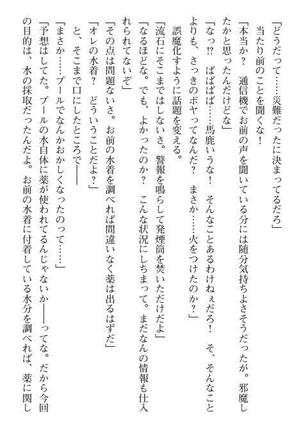 「どうだって……災難だったに決まってるだろ」
当たり前のことを聞くな！
「本当か？　通信機でお前の声を聞いている分には随分気持ちよさそうだったが。邪魔し
たかと思ったんだけどな」
「なっ!?　ばばばば……馬鹿いうな！　そんなことあるわけねぇだろ！　そ、そんなこと
より、さっきのボヤってなんだ？　まさか……火をつけたのか？」
誤魔化すように話題を変える。
「流石にそこまではしないさ。警報を鳴らして発煙筒を焚いただけだよ」
「なるほどな。でも、よかったのか？　こんな状況にしちまって。まだなんの情報も仕入
れてないぞ」
「その点は問題ないさ。お前の水着を調べれば間違いなく薬は出るはずだ」
「オレの水着？　どういうことだよ？」
と、そこまで口にしたところで――
「まさか……プールでなんかおかしくなったのって……」
「予想はしてた。プールの水自体に薬が使われてるんじゃないか――ってな。だから今回
の目的は、水の採取だったんだよ。お前の水着に付着している水分を調べれば、薬に関し